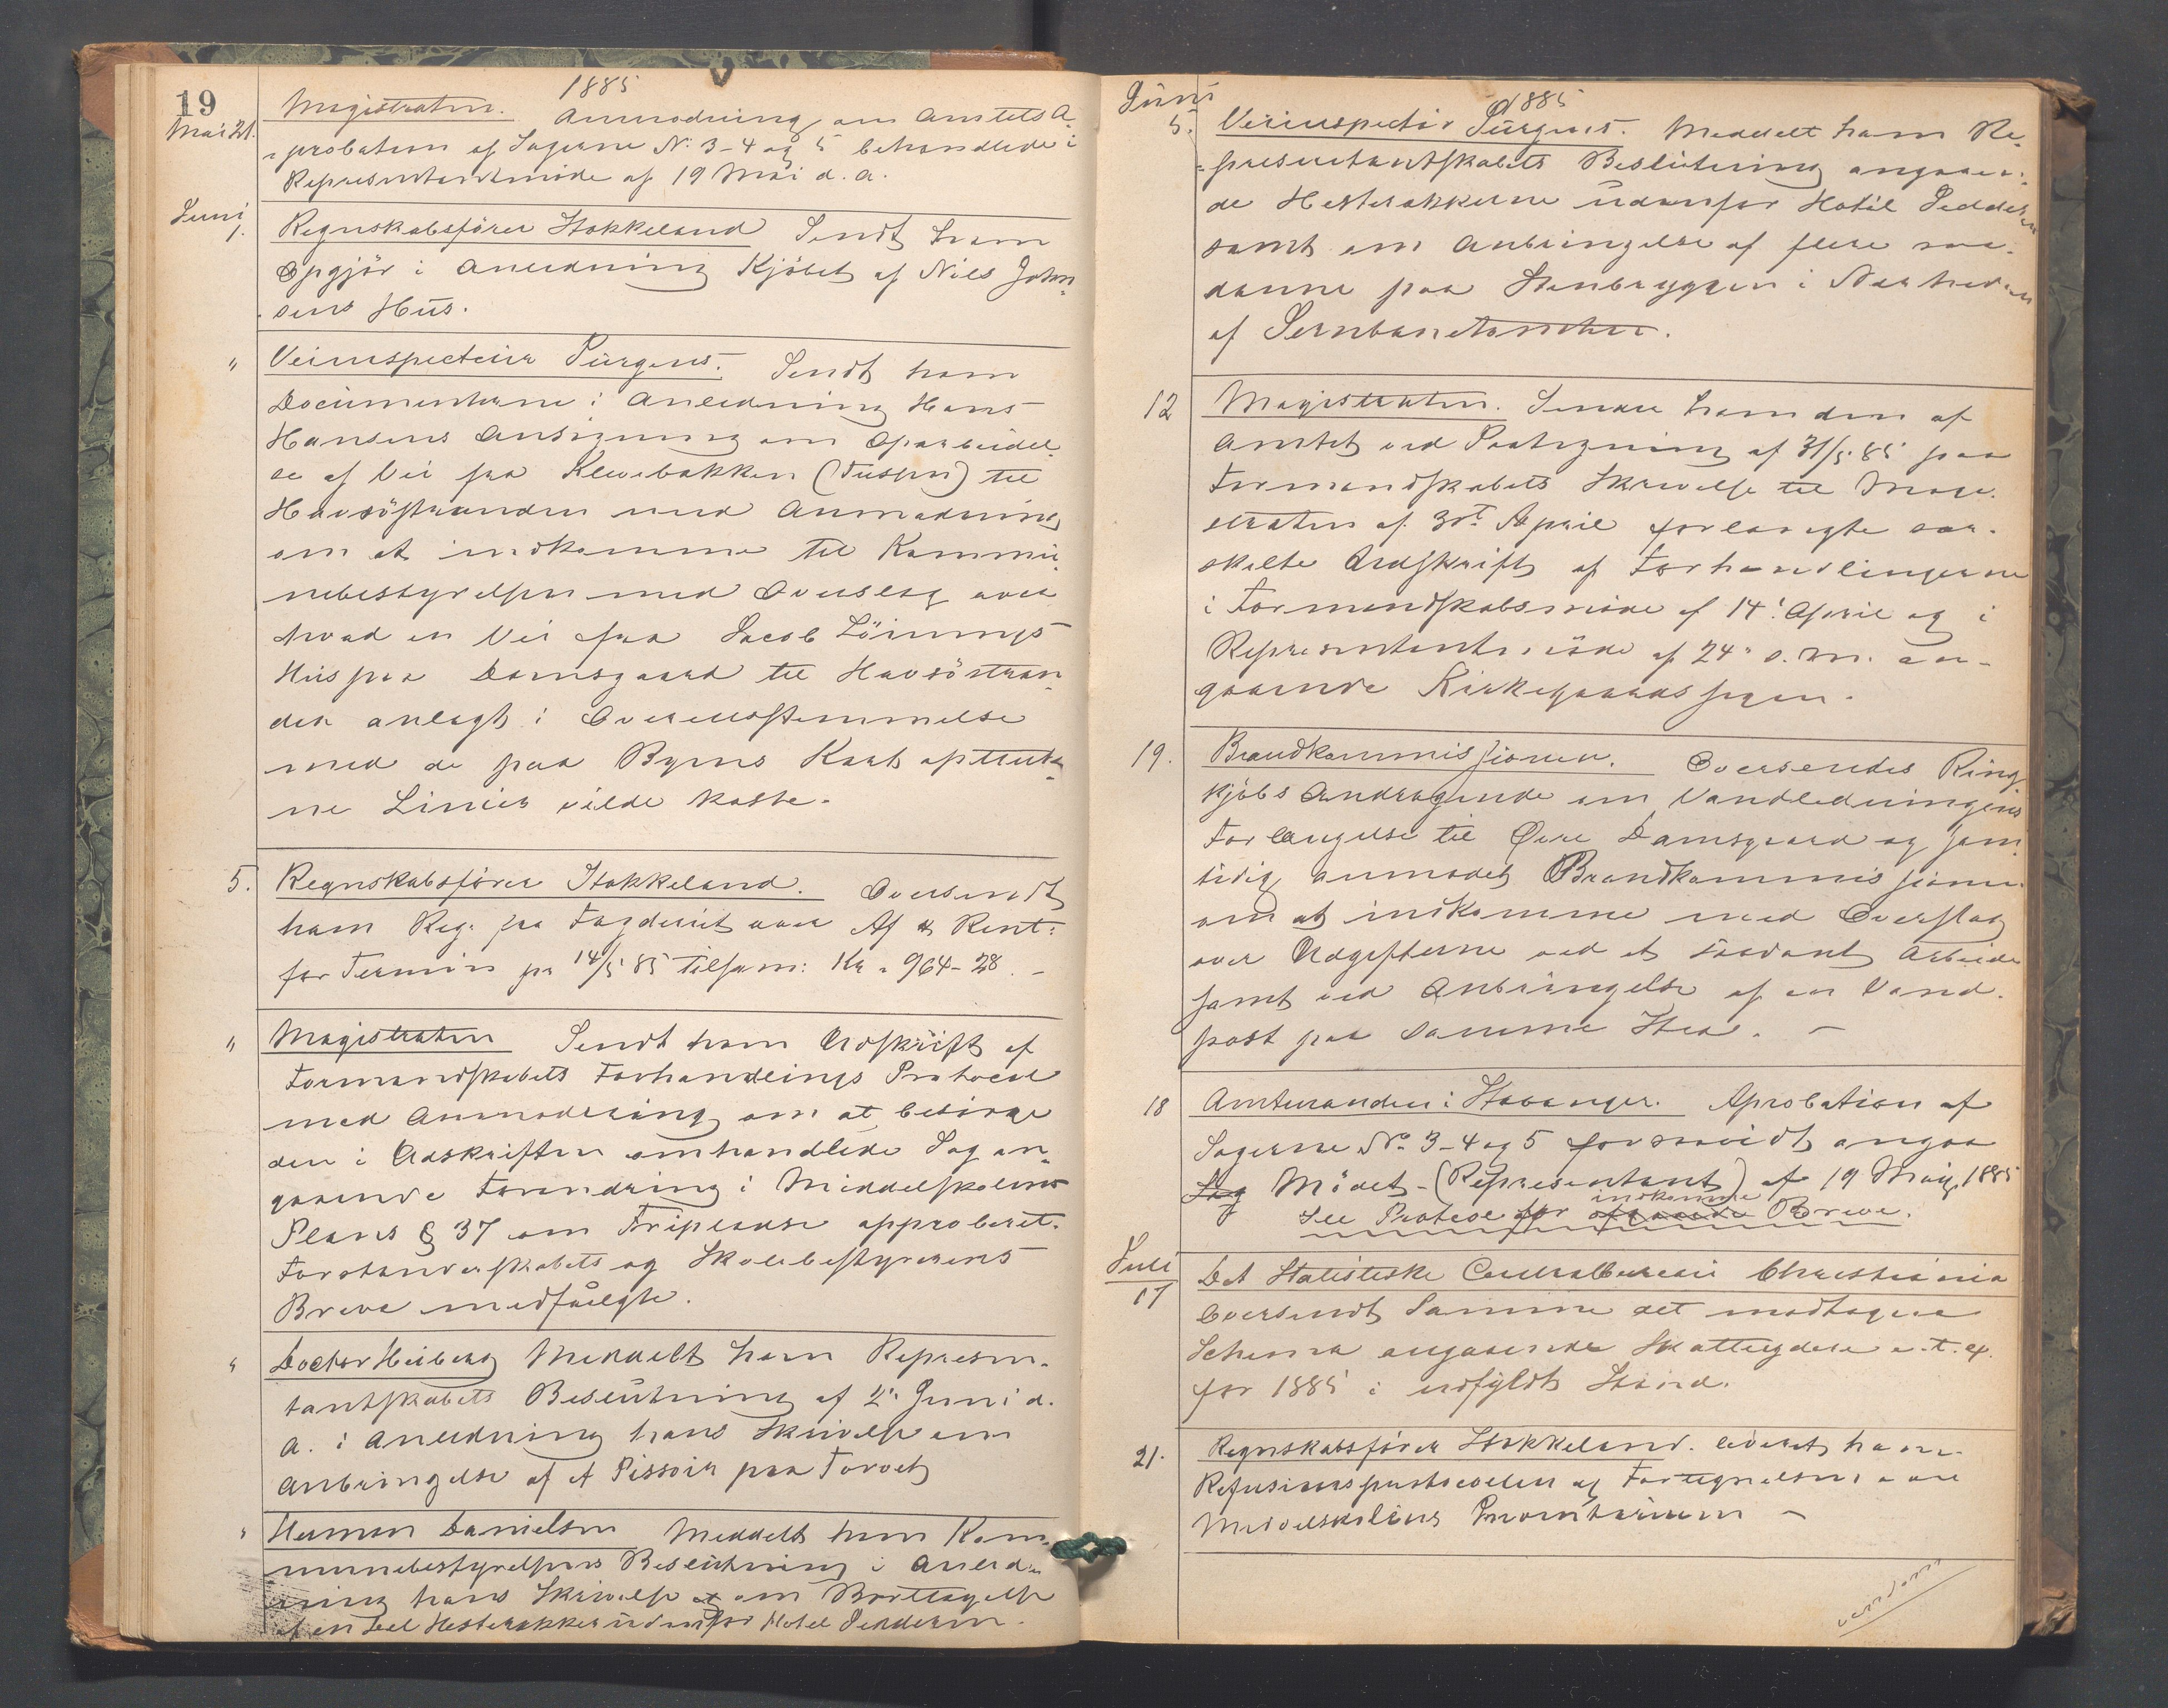 19
1885
Mai 21.
Magistraten. Anmodning om Amtets A-
probation af Sagerne No. 3-4 og 5 behandlede i
Representantmøde af 19 Mai d. a.
Juni
1.
Regnskabsförer Stokkeland Sendt ham
Opgjör i Anledning Kjöbet af Niels John-
sens Hus.
" Veiinspecteur Jürgens. Sendt ham
Documenterne i Anledning Hans
Hansens Ansögning om Oparbeidel-
se af Vei fra Klevebakken (Tuespn) til
Havsöstranden med Anmodning
om at indkomme til Kommu-
nebestyrelsen med Overslag over
hvad en Vei fra Jacob Löinings
Hus paa Damsgaard til Havsöstran-
den anlagt i Overensstemmelse
med de paa Byens Kart optrukk-
ne Linier vilde koste.
5. Regnskabsförer Stokkeland. Oversendt
ham Reg. fra Fogderiet over Af & Rent:
for Termin pr 14/5 85 tilsam: Kr. 964-28. -
" Magistraten Sendt ham Udskrift af
Formandskabets Forhandlings Protocol
med Anmodning om at besörge
den i Udskriften omhandlede Sag an-
gaaende Forandring i Middelskolens
Plans § 37 om Fripladse approberet.
Forstanderskabets og Skolebestyrerens
Breve medfulgte.
" Doctor Heiberg Meddelt ham Represen-
tantskabets Beslutning af 2. Juni d.
a. i Anledning hans Skrivelse om
Anbringelse af et Pissoir paa Torvet
" Herman Danielsen Meddelt ham Kom-
munebestyrelsens Beslutning i Anled-
ning hans Skrivelse om Borttagelse
af en Del Hesterakker udenfor Hotel Jedderen.
Juni
1885
5. Veiinspectör Jürgens. Meddelt ham Re-
presentantskabets Beslutning angaaen-
de Hesterakkerne udenfor Hotel Jedderen
samt om Anbringelse af flere saa-
danne paa Stenbryggen i Nærheden
af Jernbanetomten.
12 Magistraten. Sendte ham den af
Amtet ved Paategning af 31/5 85 paa
Formandskabets Skrivelse til Magi-
straten af 30t April forlangte sær-
skilte Udskrift af Forhandlingerne
i Formandskabsmöde af 14. April og i
Representantmöde af 24. s. m. an-
gaaende Kirkegaardssagen.
19. Brandkommissionen. Oversendes Ring
kjöbs Andragende om Vandledningens
Forlængelse til Övre Damsgaard og sam-
tidig anmodet Brandkommissionen
om at indkomme med Overslag
over Udgifterne ved et saadant Arbeide
samt ved Anbringelse af en Vand-
post paa samme Sted. -
18 Amtmanden i Stavanger. Aprobation af
Sagerne No. 3-4 og 5 forsaavidt angaa
Mödet - (Representant) af 19 Mai 1885
indkomne
see Protocol for afgaaende Breve.
Juli
17
Det Statistiske Centralbureau Christiania
Oversendt Samme det modtagne
Schema angaaende Skatteydere e. t. c.
for 1885 i udfyldt Stand.
21. Regnskabsförer Stokkeland. leveret ham
Refusionsprotocollen og Fortegnelsen over
Middelskolens Inventarium -